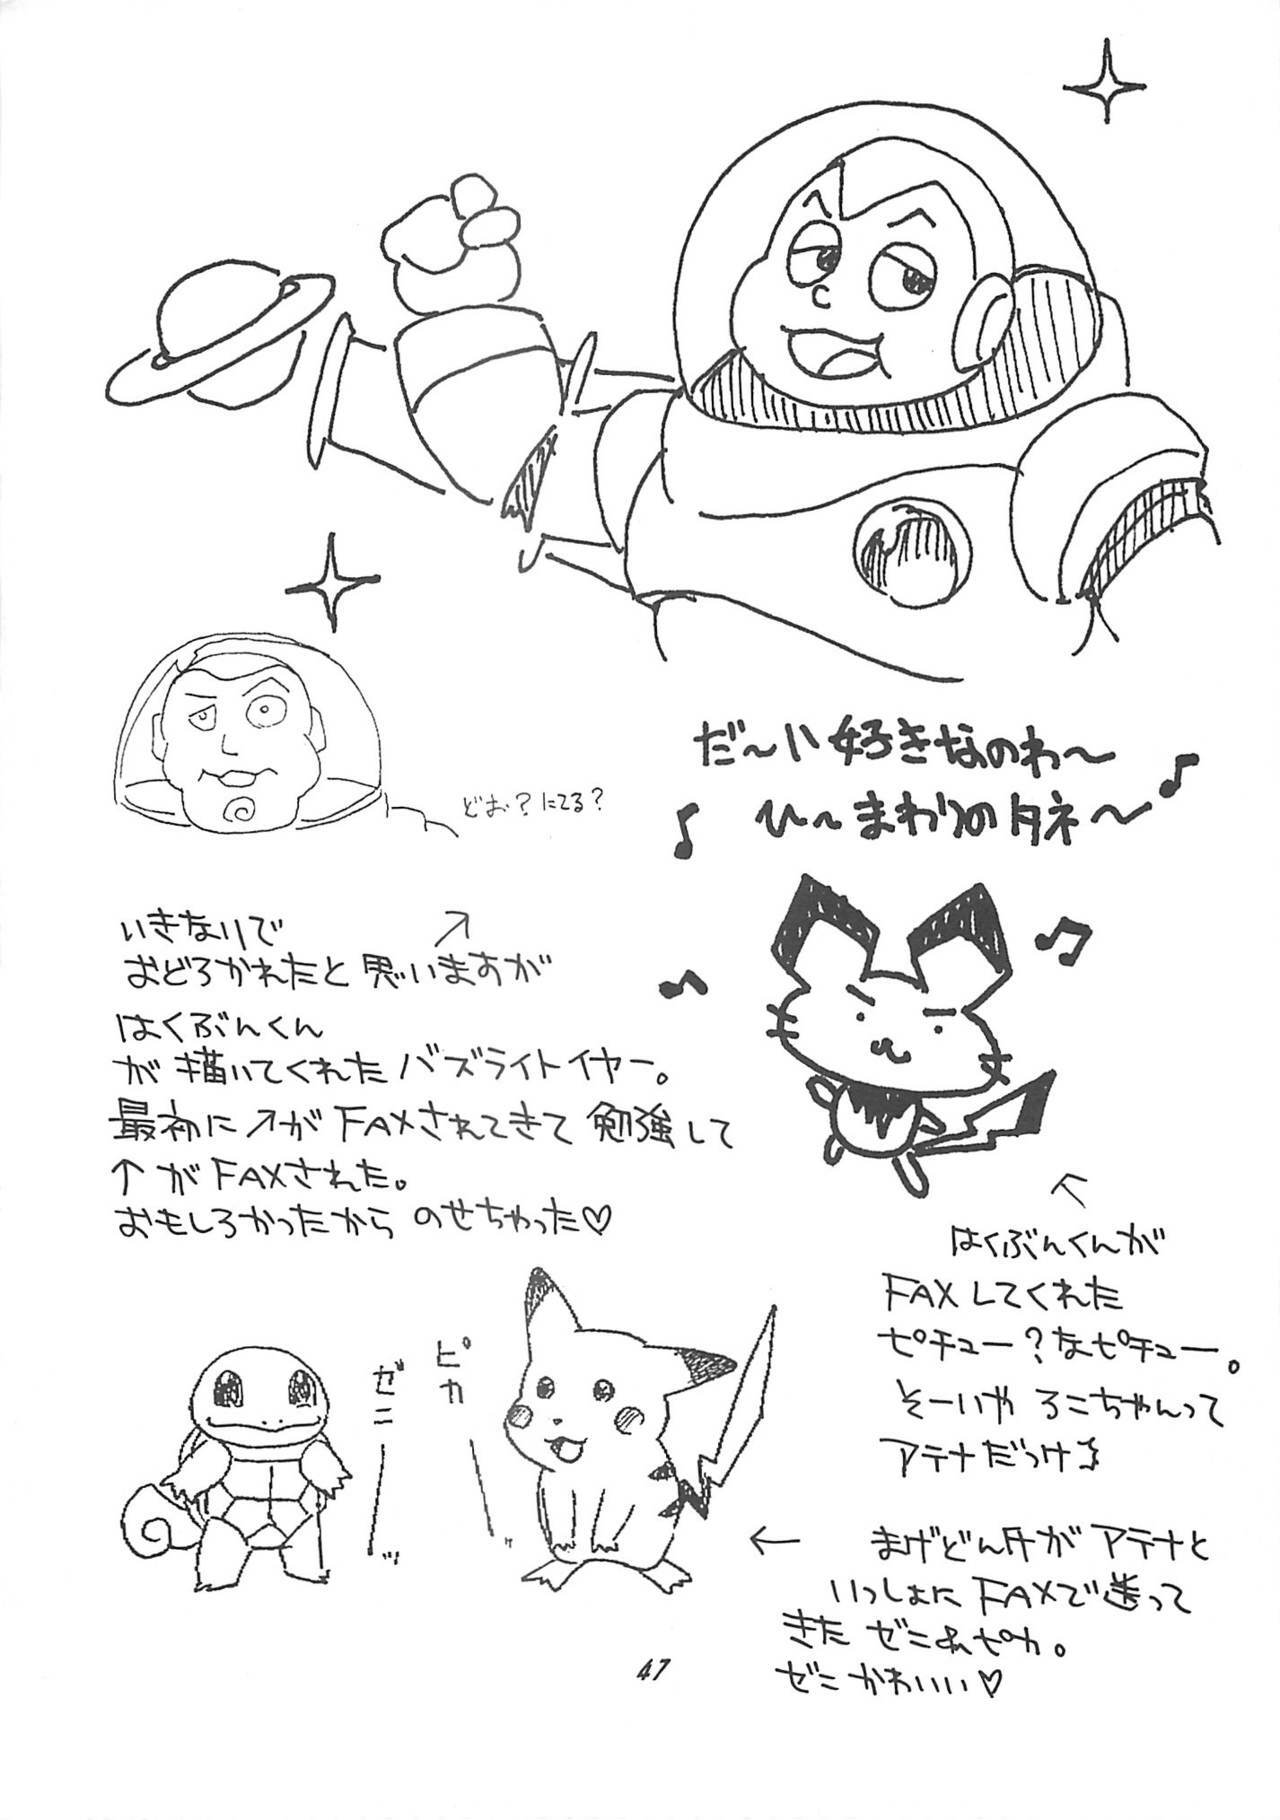 だ〜い好きなのわ〜
ひ〜まわりのタネ〜
どお？にてる？
いきないで
おどろかれたと思いますが
はくぶんくん
が描いてくれたバズライトイヤー。
最初に↗がFAXされてきて勉強して
↑がFAXされた。
おもしろかったからのせちゃった♡
はくぶんくんが
FAXしてくれた
ピチュー？なピチュー。
そーいやろこちゃんって
アテナだっけ
ゼニーッ
ピカーッ
← まげどん牛がアテナと
いっしょにFAXで送って
きたゼニ&ピカ。
ゼニかわいい♡
47